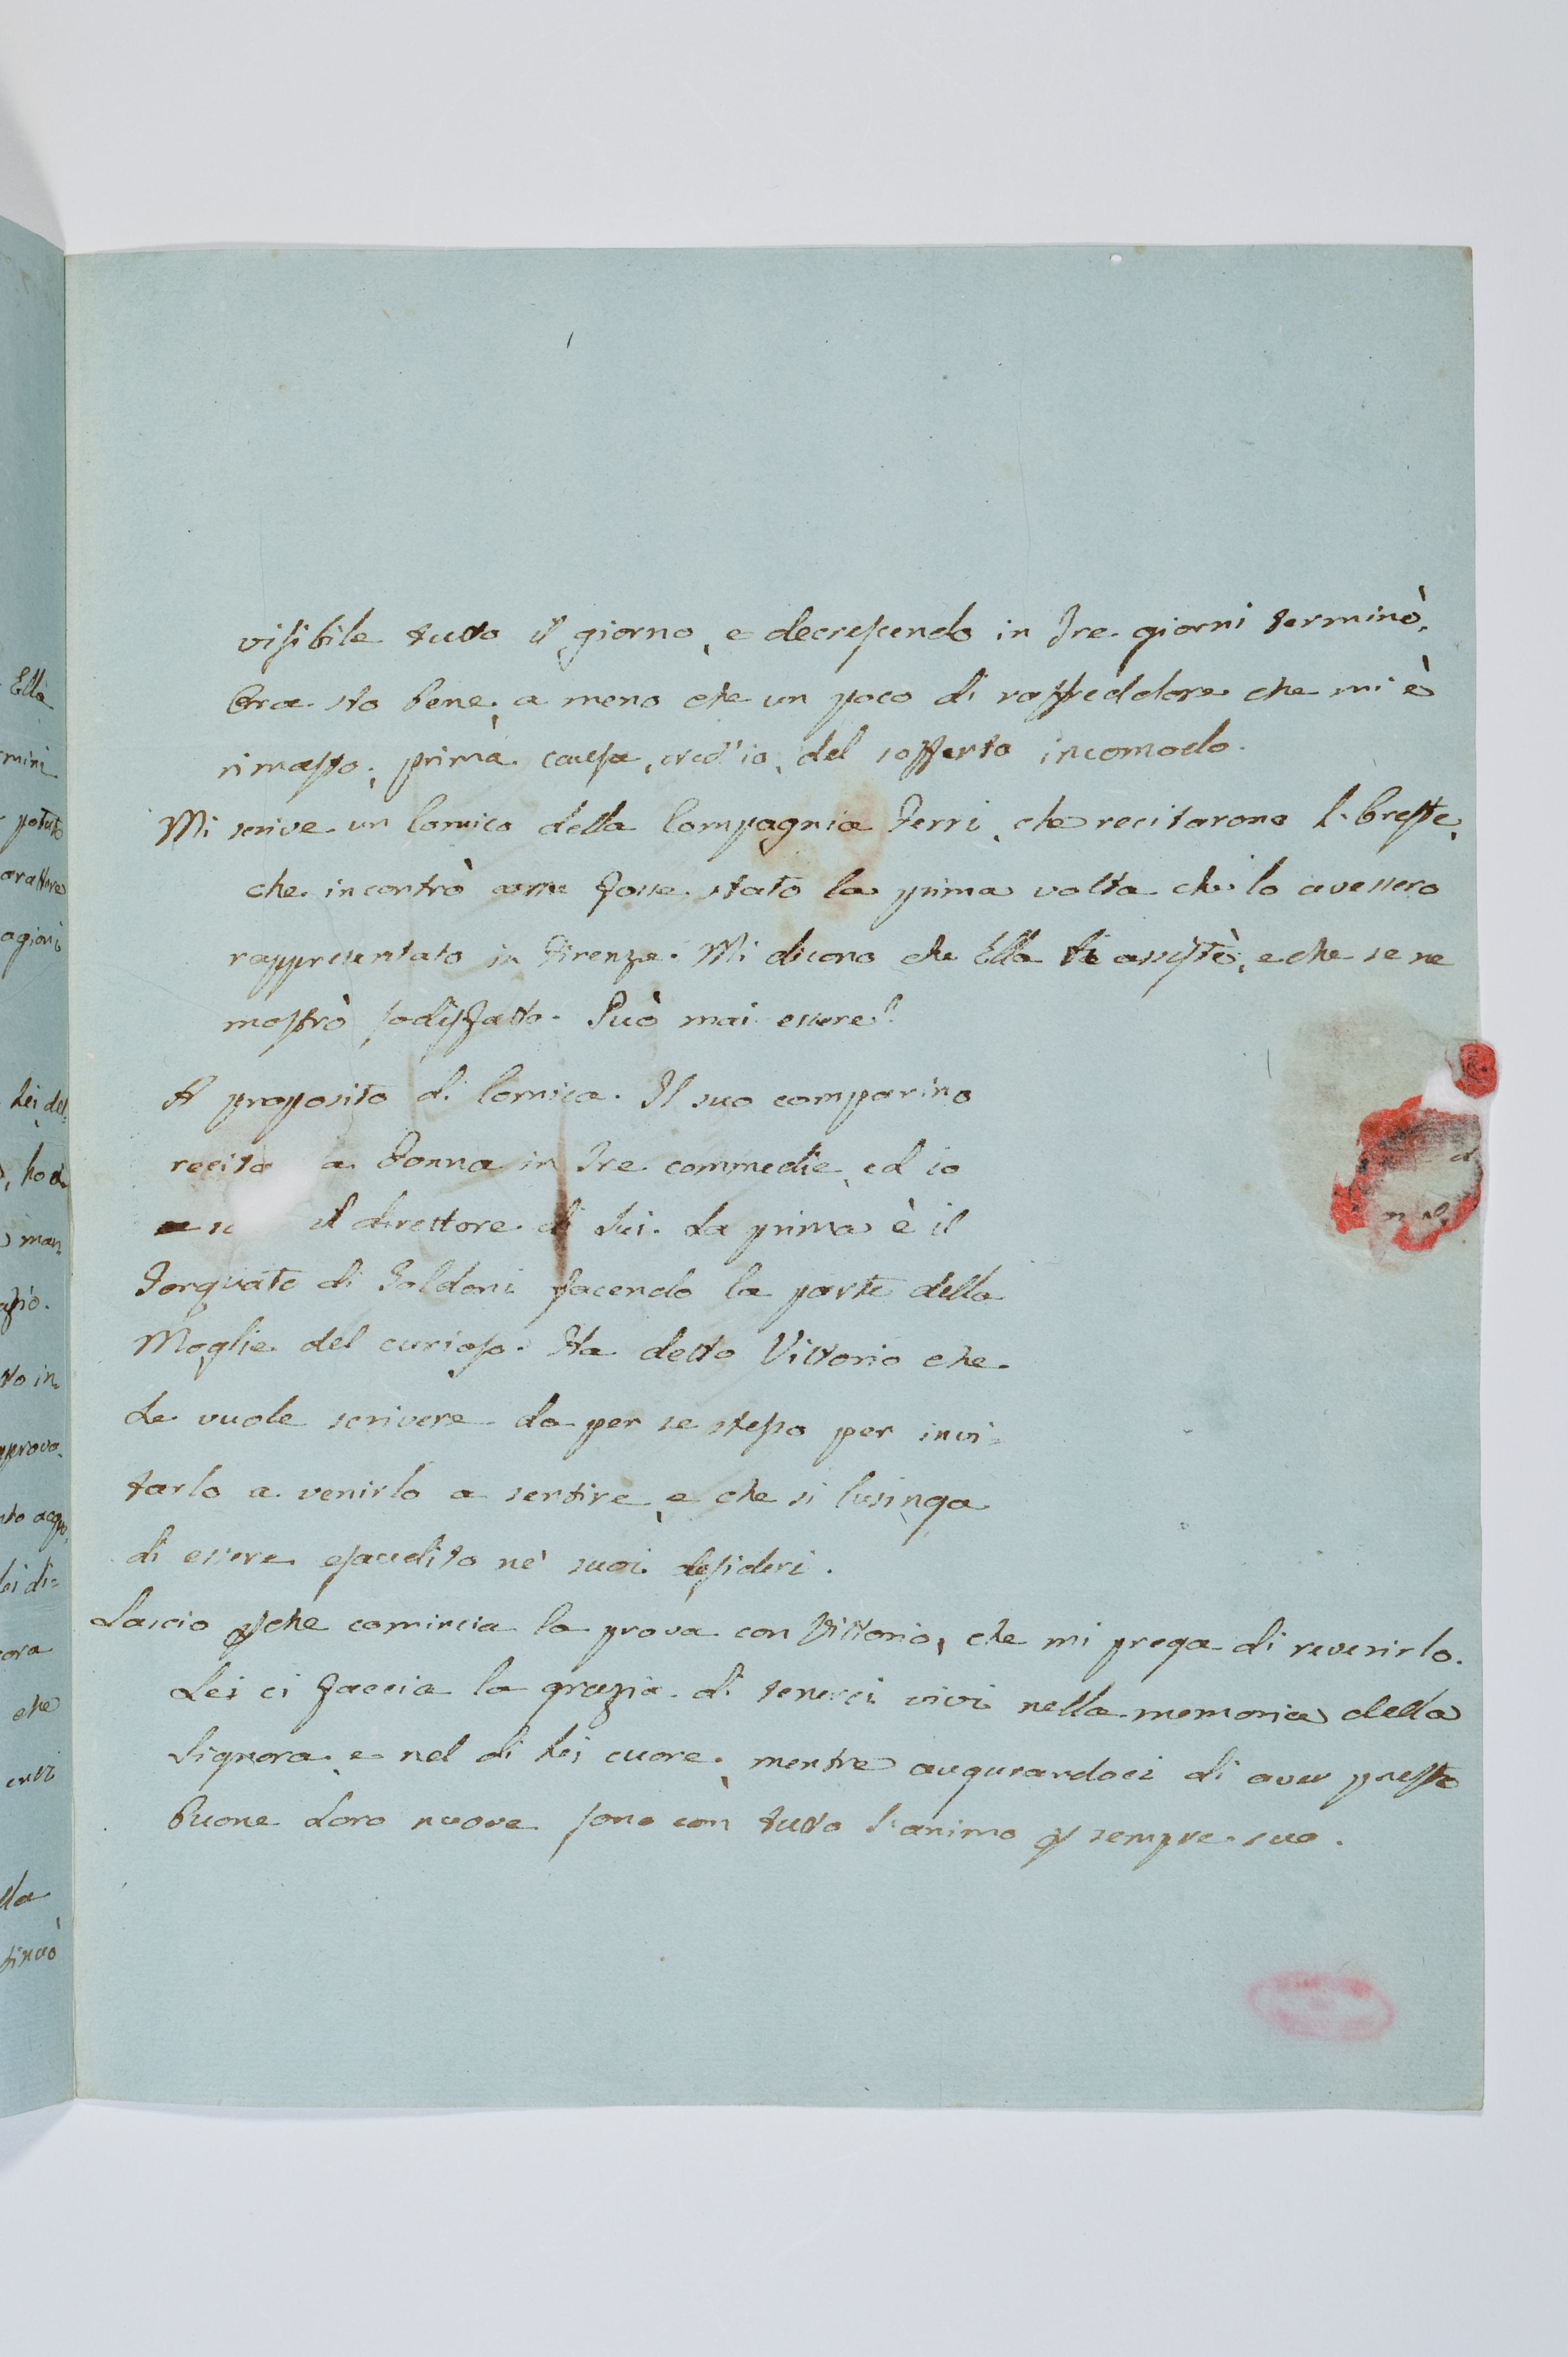 visibile tutto il giorno, e decrescendo in tre giorni terminò.
Ora sto bene, a meno che un poco di raffreddore che mi è
rimasso, prima causa, cred'io, del sofferto incomodo.
Mi scrive un Comico della Compagnia Ferri, che recitarono l'Oreste,
che incontrò come fosse stato la prima volta che lo avessero
rappresentato in Firenze. Mi dicono che Ella vi assistè, e che se ne
mostrò sodisfatto. Può mai essere?
A proposito di Comica. Il suo comparino
recita da Donna in tre commedie, ed io
il direttore di Lui. La prima è il
Torquato di Goldoni facendo la parte della
Moglie del curioso. Ha detto Vittorio che
Le vuole scrivere da per se stesso per invi=
tarlo a venirlo a sentire, e che si lusinga
di essere esaudito ne' suoi desideri.
Lascio che comincia la prova con Vittorio, che mi prega di reverirlo.
Lei ci faccia la grazia di tenerci vivi nella memoria della
Signora, e nel di Lei cuore, mentre augurandoci di aver presto
buone Loro nuove sono con tutto l'animo sempre suo.
Ella
potuto
Lei del
man
to in
che
tinuò